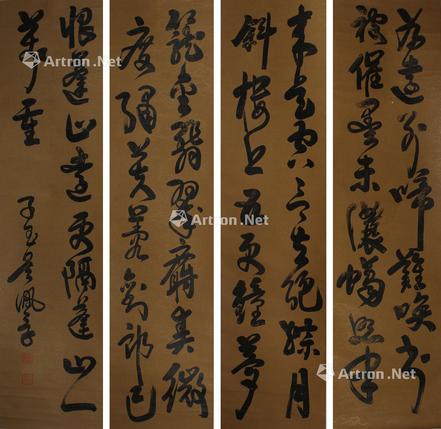 為遠別啼難喚書
被催墨未濃蠟照半
來是空言去絕蹤月
斜樓上五更鐘夢
籠金翡翠麝熏微
度繡芙蓉劉郎已
恨蓬山遠更隔蓬山一
萬重
Artron.Net
Artron.Net
Artron.Net
Artron.Net